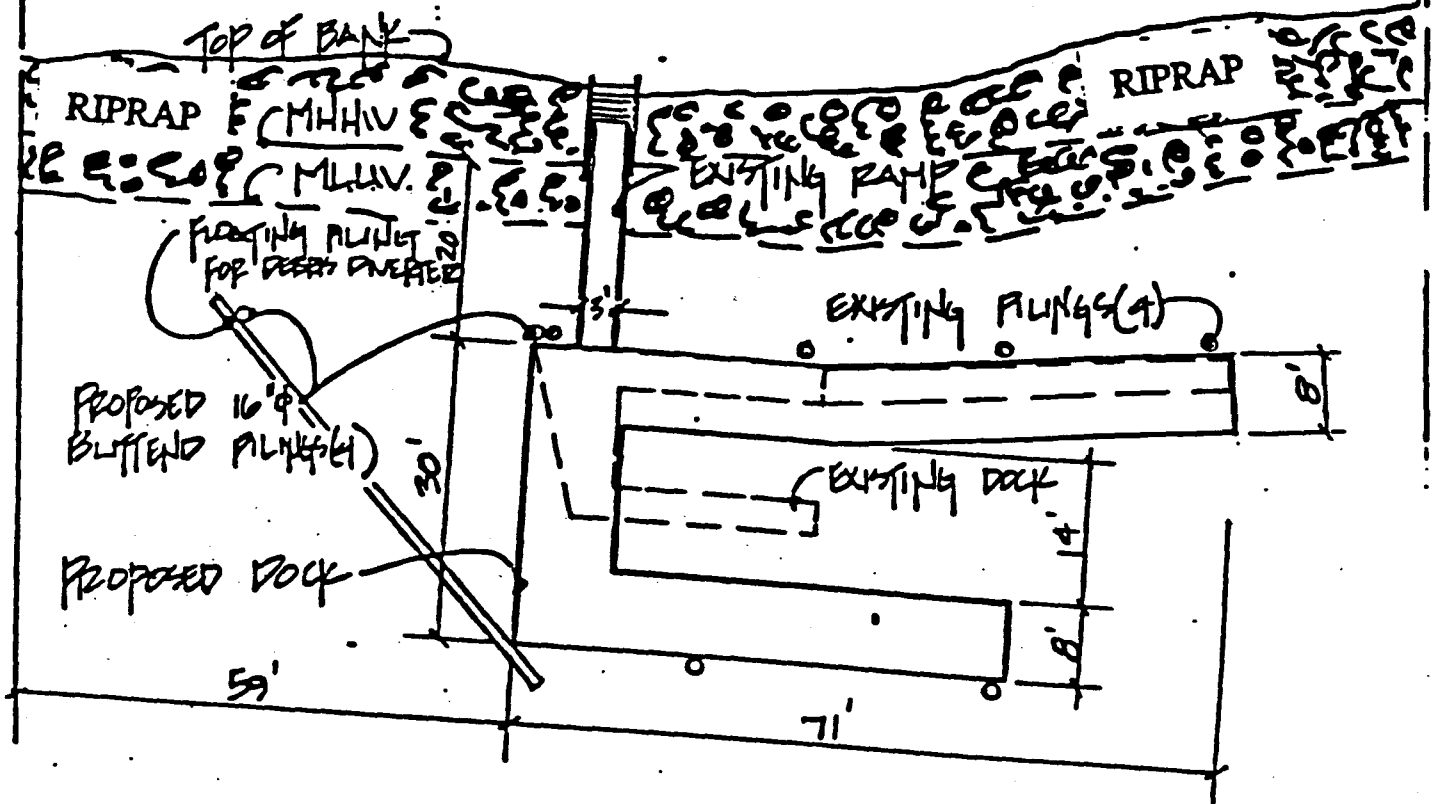 TOP OF BANK
RIPRAP
RIPRAP
M.H.H.W
M.L.L.W.
EXISTING RAMP
FLOATING PILING
FOR DEBRIS DIVERTER
20'
3'
EXISTING PILINGS(4)
8'
PROPOSED 16"φ
BUTTEND PILINGS(4)
30'
EXISTING DOCK
14'
PROPOSED DOCK
8'
59'
71'